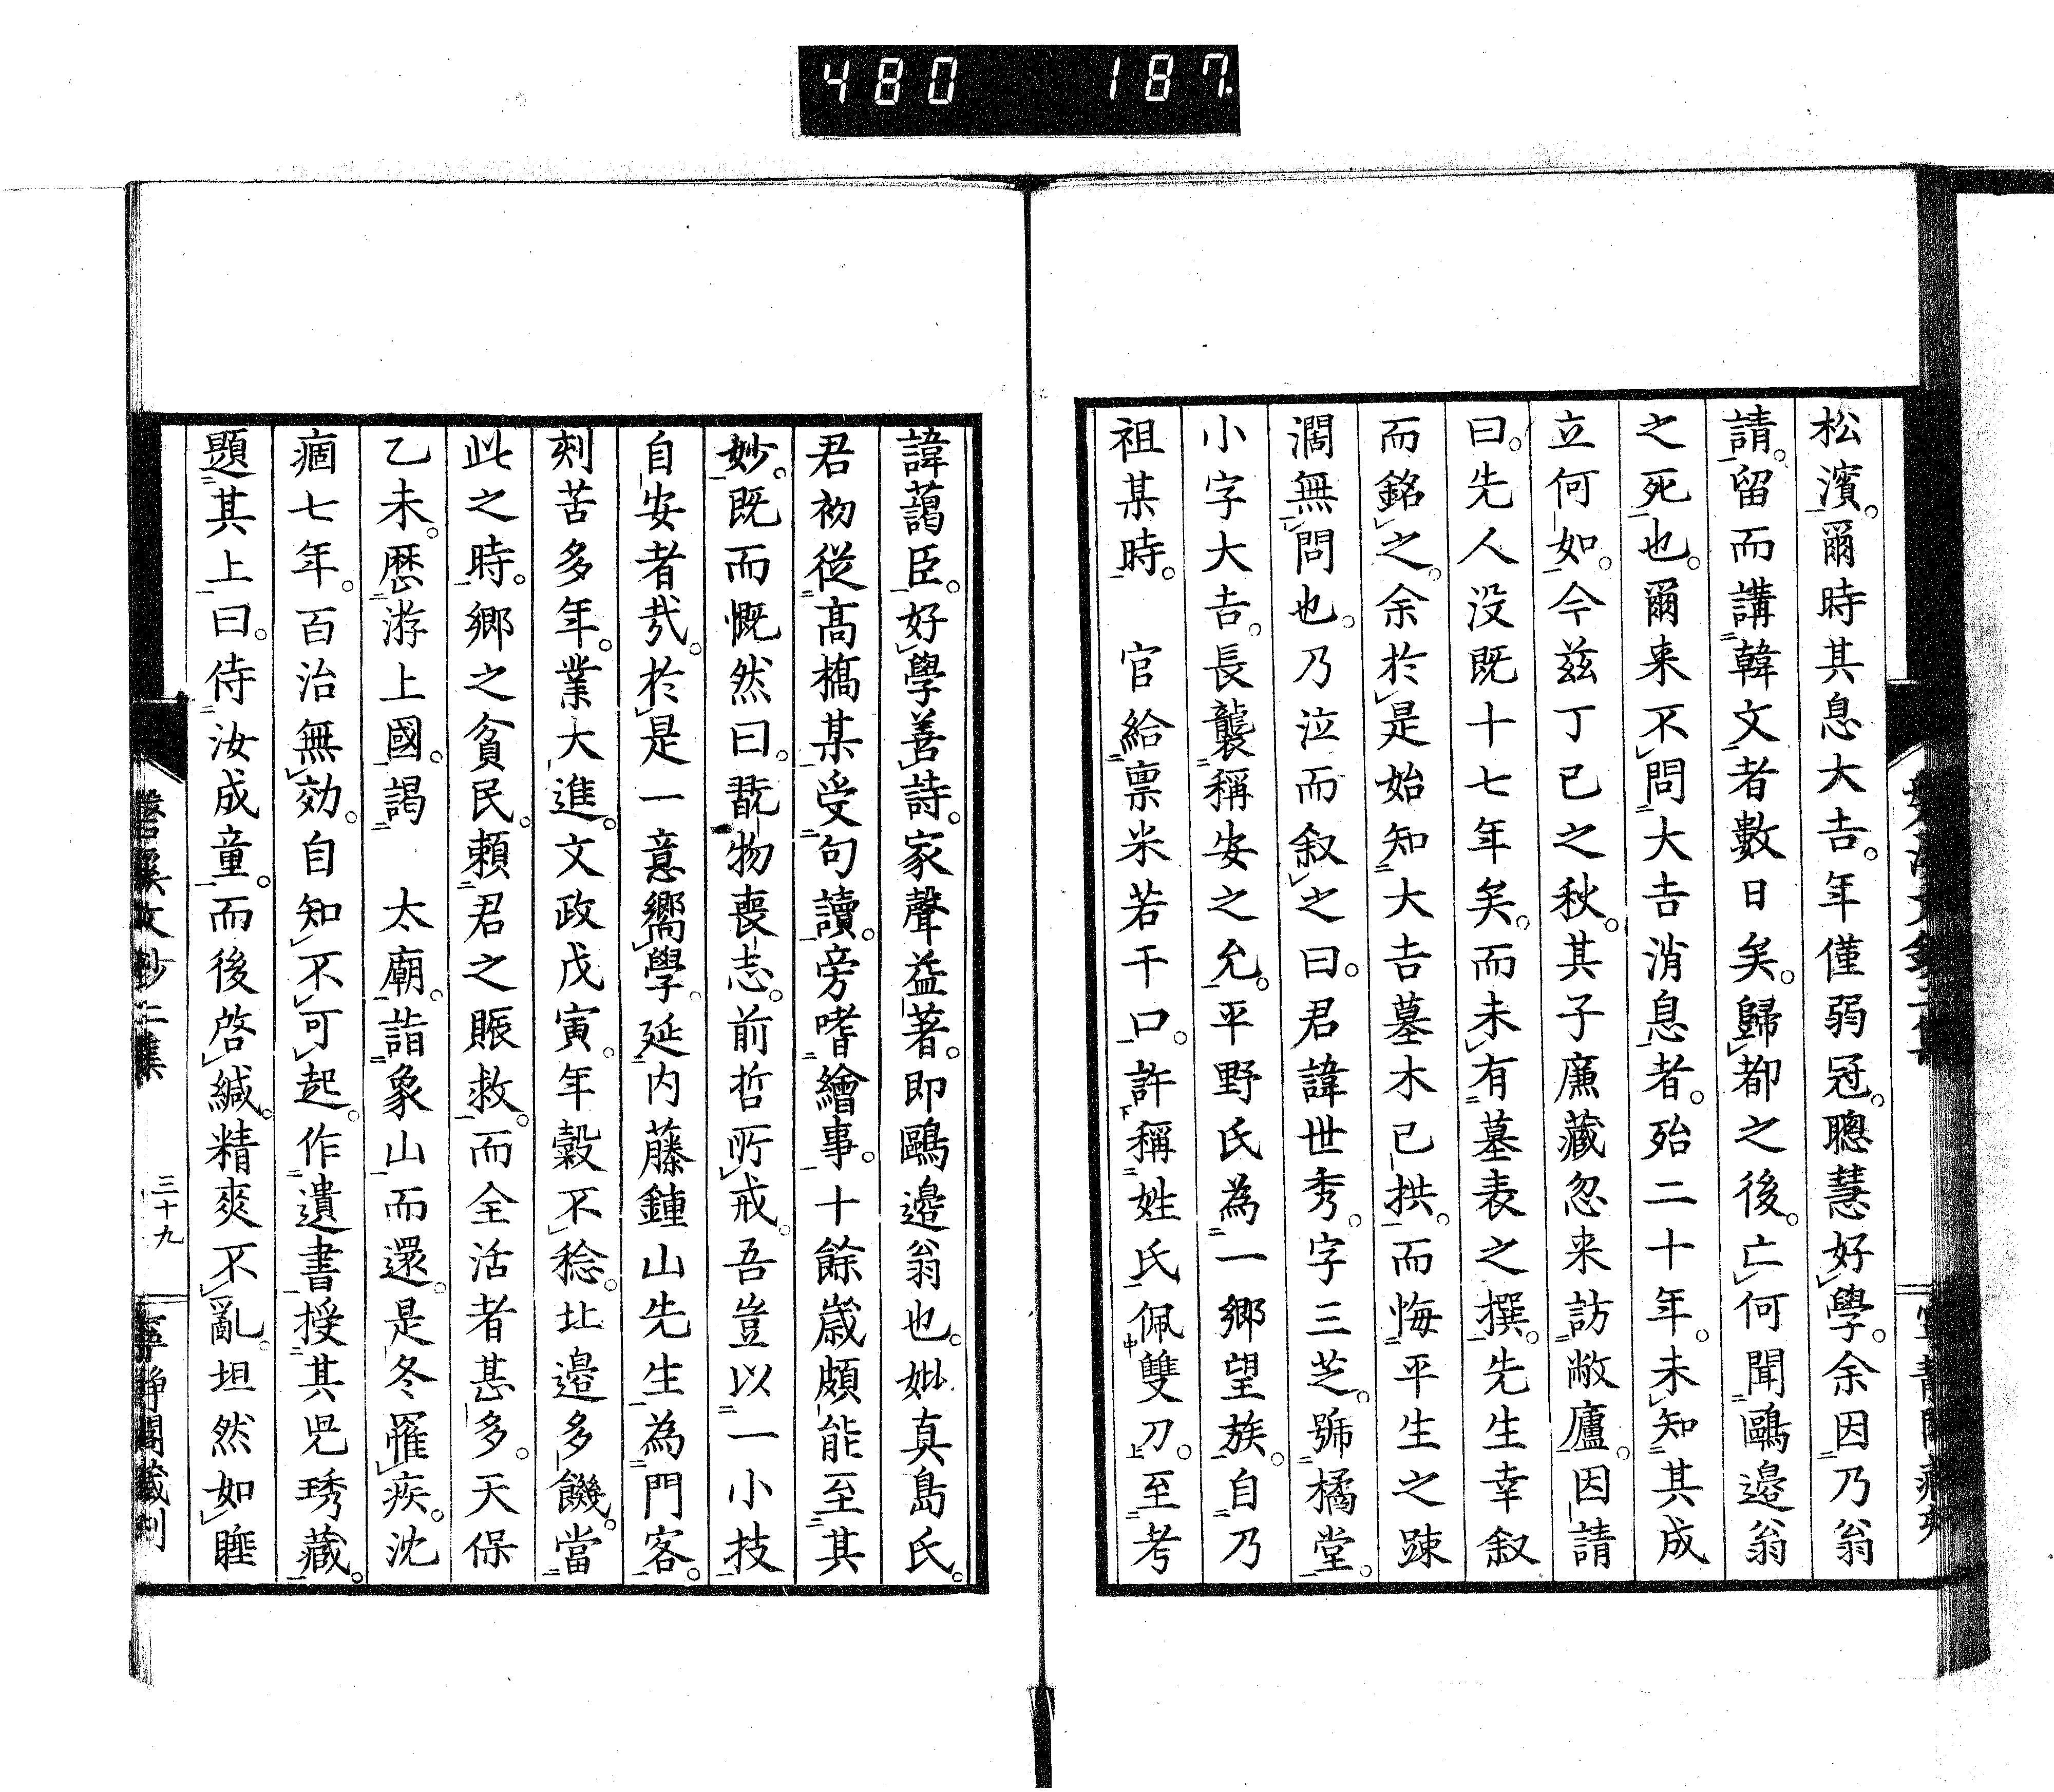 480 187.
松濱。爾時其息大吉。年僅弱冠。聰慧好學。余因乃翁
請。留而講韓文者數日矣。歸都之後。亡何聞鷗邉翁
之死也。爾来不問大吉消息者。殆二十年。未知其成
立何如。今茲丁巳之秋。其子廉藏忽来訪敝廬。因請
曰。先人没既十七年矣。而未有墓表之撰。先生幸叙
而銘之。余於是始知大吉墓木已拱。而悔平生之踈
濶無問也。乃泣而叙之曰。君諱世秀。字三芝。號橘堂。
小字大吉。長襲稱安之允。平野氏為一郷望族。自乃
祖某時。 官給禀米若干口。許稱姓氏佩雙刀。至考
諱藹臣。好學善詩。家聲益著。即鷗邉翁也。妣真島氏。
君初從髙橋某受句讀。旁嗜繪事。十餘歳頗能至其
妙。既而慨然曰。翫物喪志。前哲所戒。吾豈以一小技
自安者哉。於是一意嚮學。延内藤鍾山先生為門客。
刻苦多年。業大進。文政戊寅。年穀不稔。北邉多饑。當
此之時。郷之貧民。頼君之賑救。而全活者甚多。天保
乙未。歴游上國。謁 太廟。詣象山而還。是冬罹疾。沈
痼七年。百治無効。自知不可起。作遺書授其兒琇藏。
題其上曰。侍汝成童。而後啓緘。精爽不亂。坦然如睡
磐溪文鈔二集 三十九 寧静閣藏刊